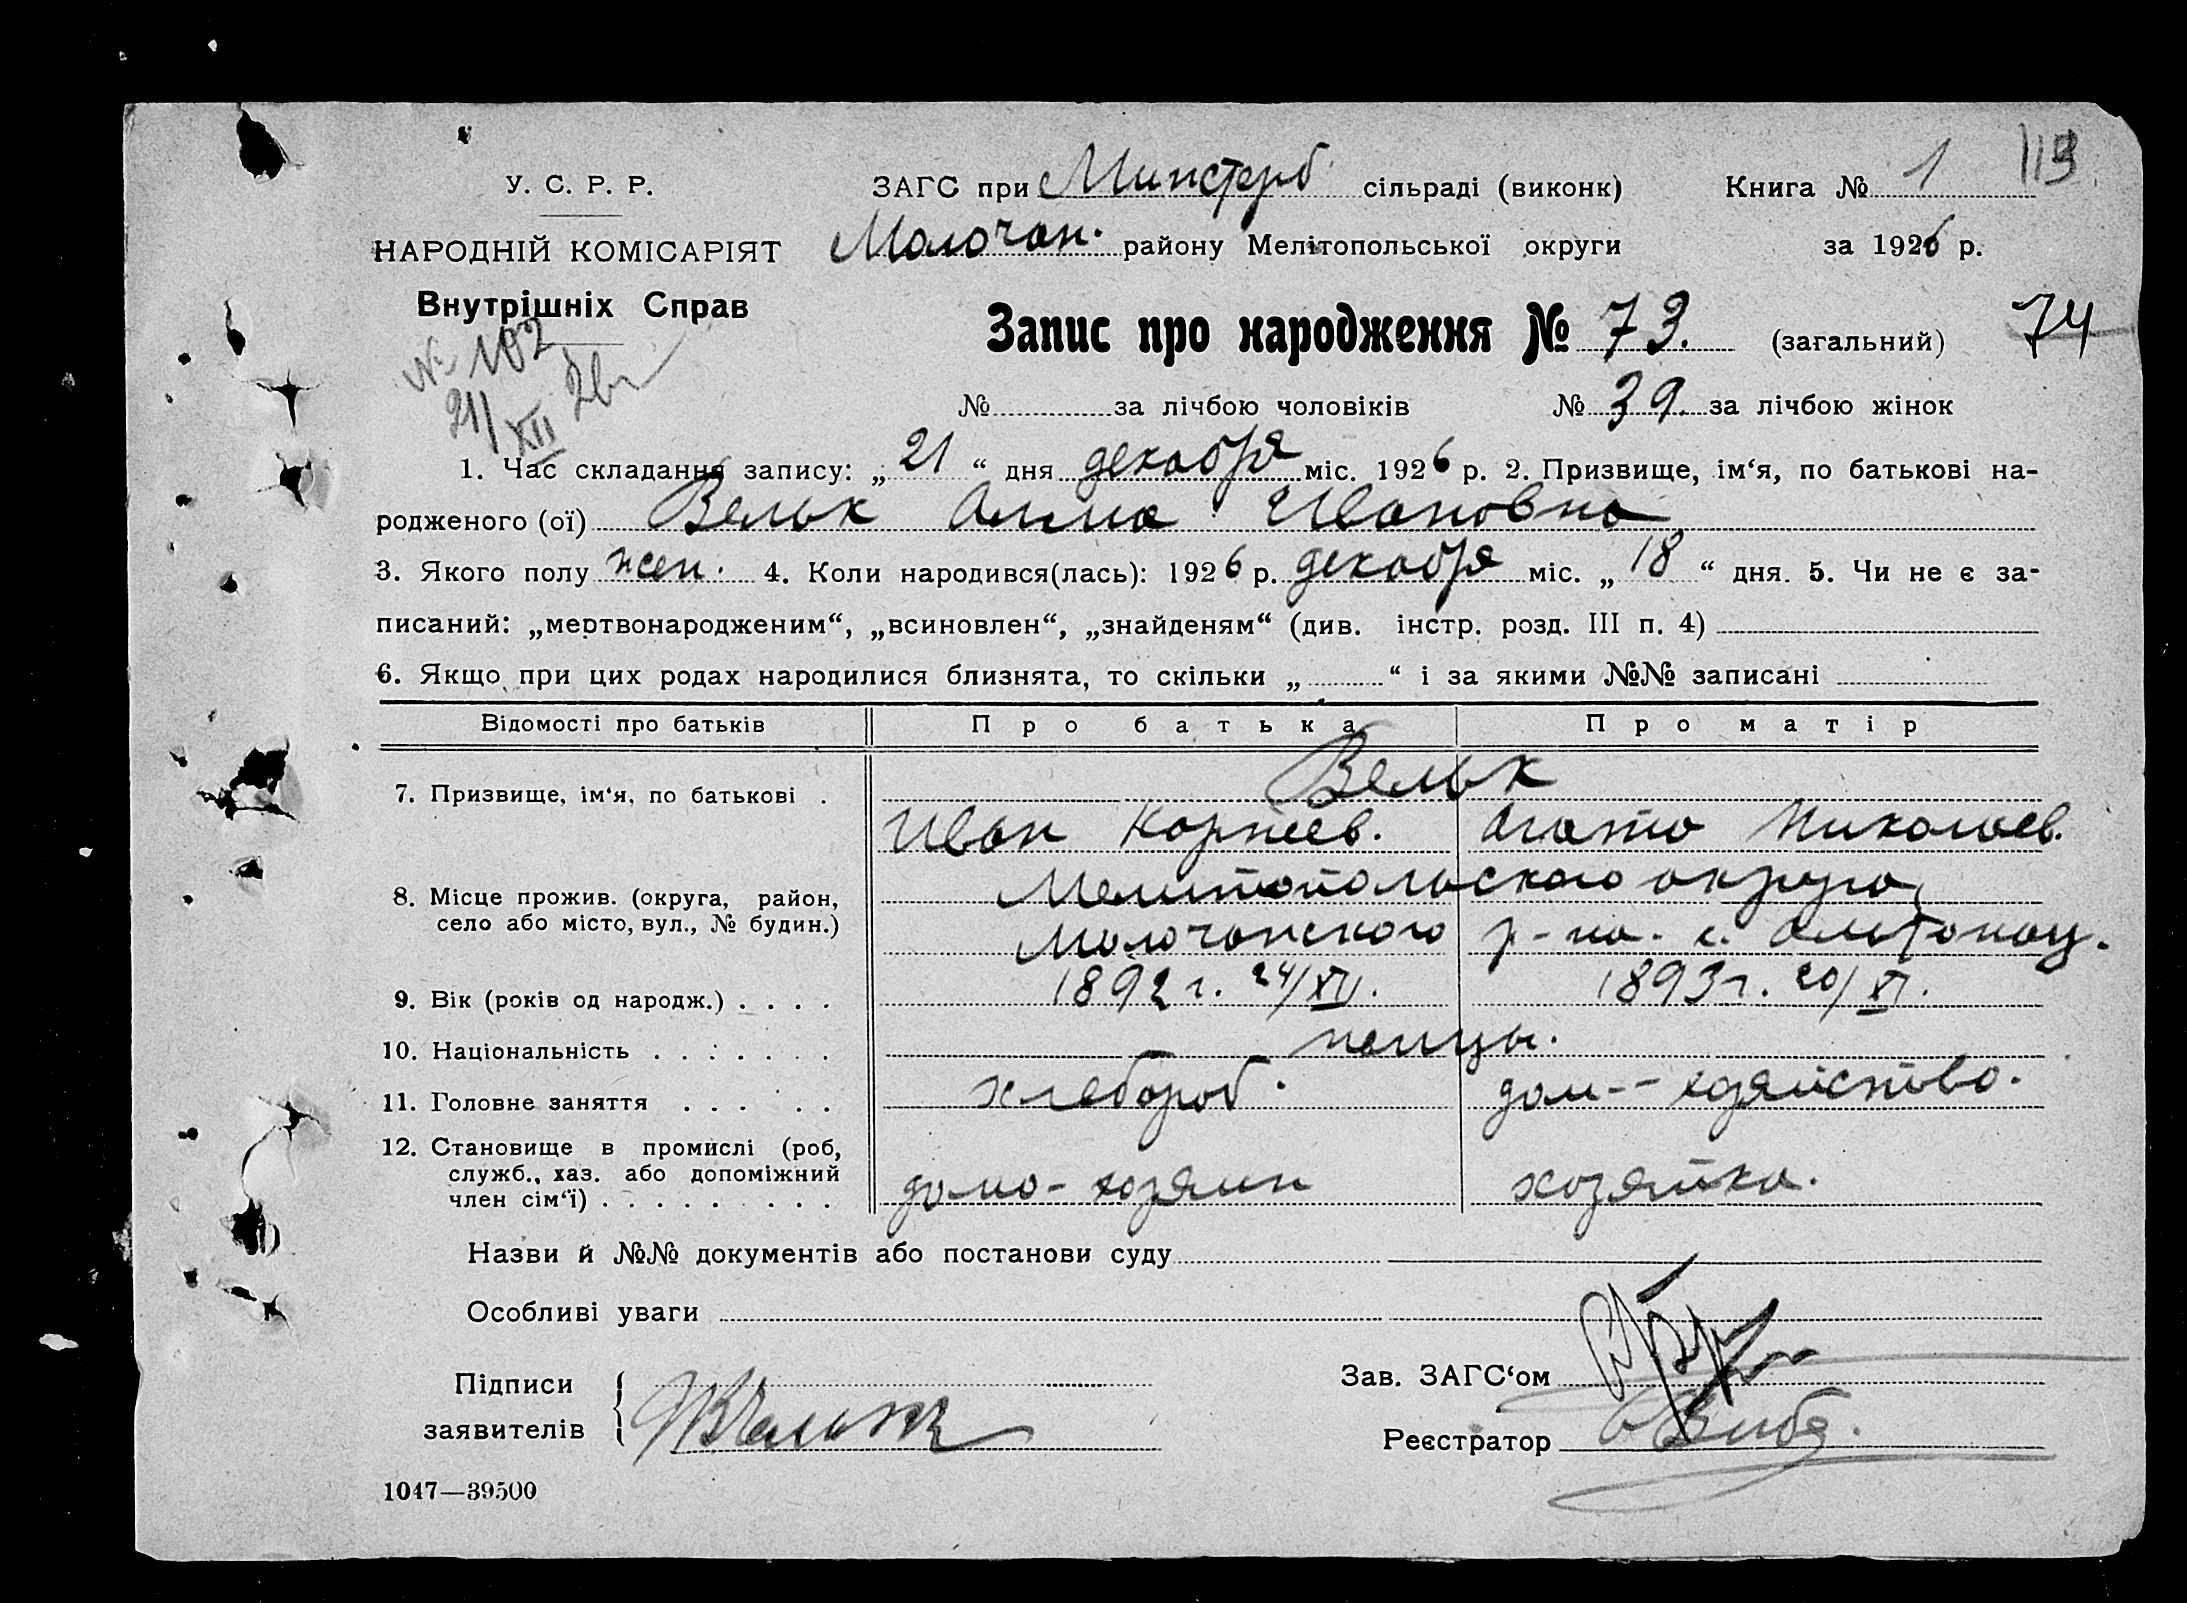 113
У. С. Р. Р.
ЗАГС при Минстерб сільраді (виконк) Книга № 1
НАРОДНІЙ КОМІСАРІЯТ
Молочан. району Мелітопольської округи за 1926 р.
Внутрішніх Справ
Запис про народження № 73. (загальний) 74
№ 102
21/XII 26
№ за лічбою чоловіків № 39. за лічбою жінок
1. Час складання запису: „ 21 “ дня декабря міс. 1926 р. 2. Призвище, ім‘я, по батькові на-
родженого (ої) Вельк Анна Ивановна
3. Якого полу жен. 4. Коли народився(лась): 1926 р. декабря міс. „ 18 “ дня. 5. Чи не є за-
писаний: „мертвонародженим“, „всиновлен“, „знайденям“ (див. інстр. розд. III п. 4)
6. Якщо при цих родах народилися близнята, то скільки „ “ і за якими №№ записані
Відомості про батьків Про батька Про матір
Вельк
7. Призвище, ім‘я, по батькові .
Иван Корнеев. Агата Николаев.
8. Місце прожив. (округа, район,
село або місто, вул., № будин.)
Мелитопольского округа,
Молочанского р-на. с.
9. Вік (років од народж.) . . . . 1892 г. 24/XII. 1893 г. 20/XI.
10. Національність . . . . . . . немцы.
11. Головне заняття . . . . . хлебороб. дом-- хозяйство.
12. Становище в промислі (роб,
служб., хаз. або допоміжний
член сім‘ї) . . . . . . . . . домо-хозяин хозяйка.
Назви й №№ документів або постанови суду
Особливі уваги
Підписи
заявителів
Зав. ЗАГС‘ом
Реєстратор
1047—39500